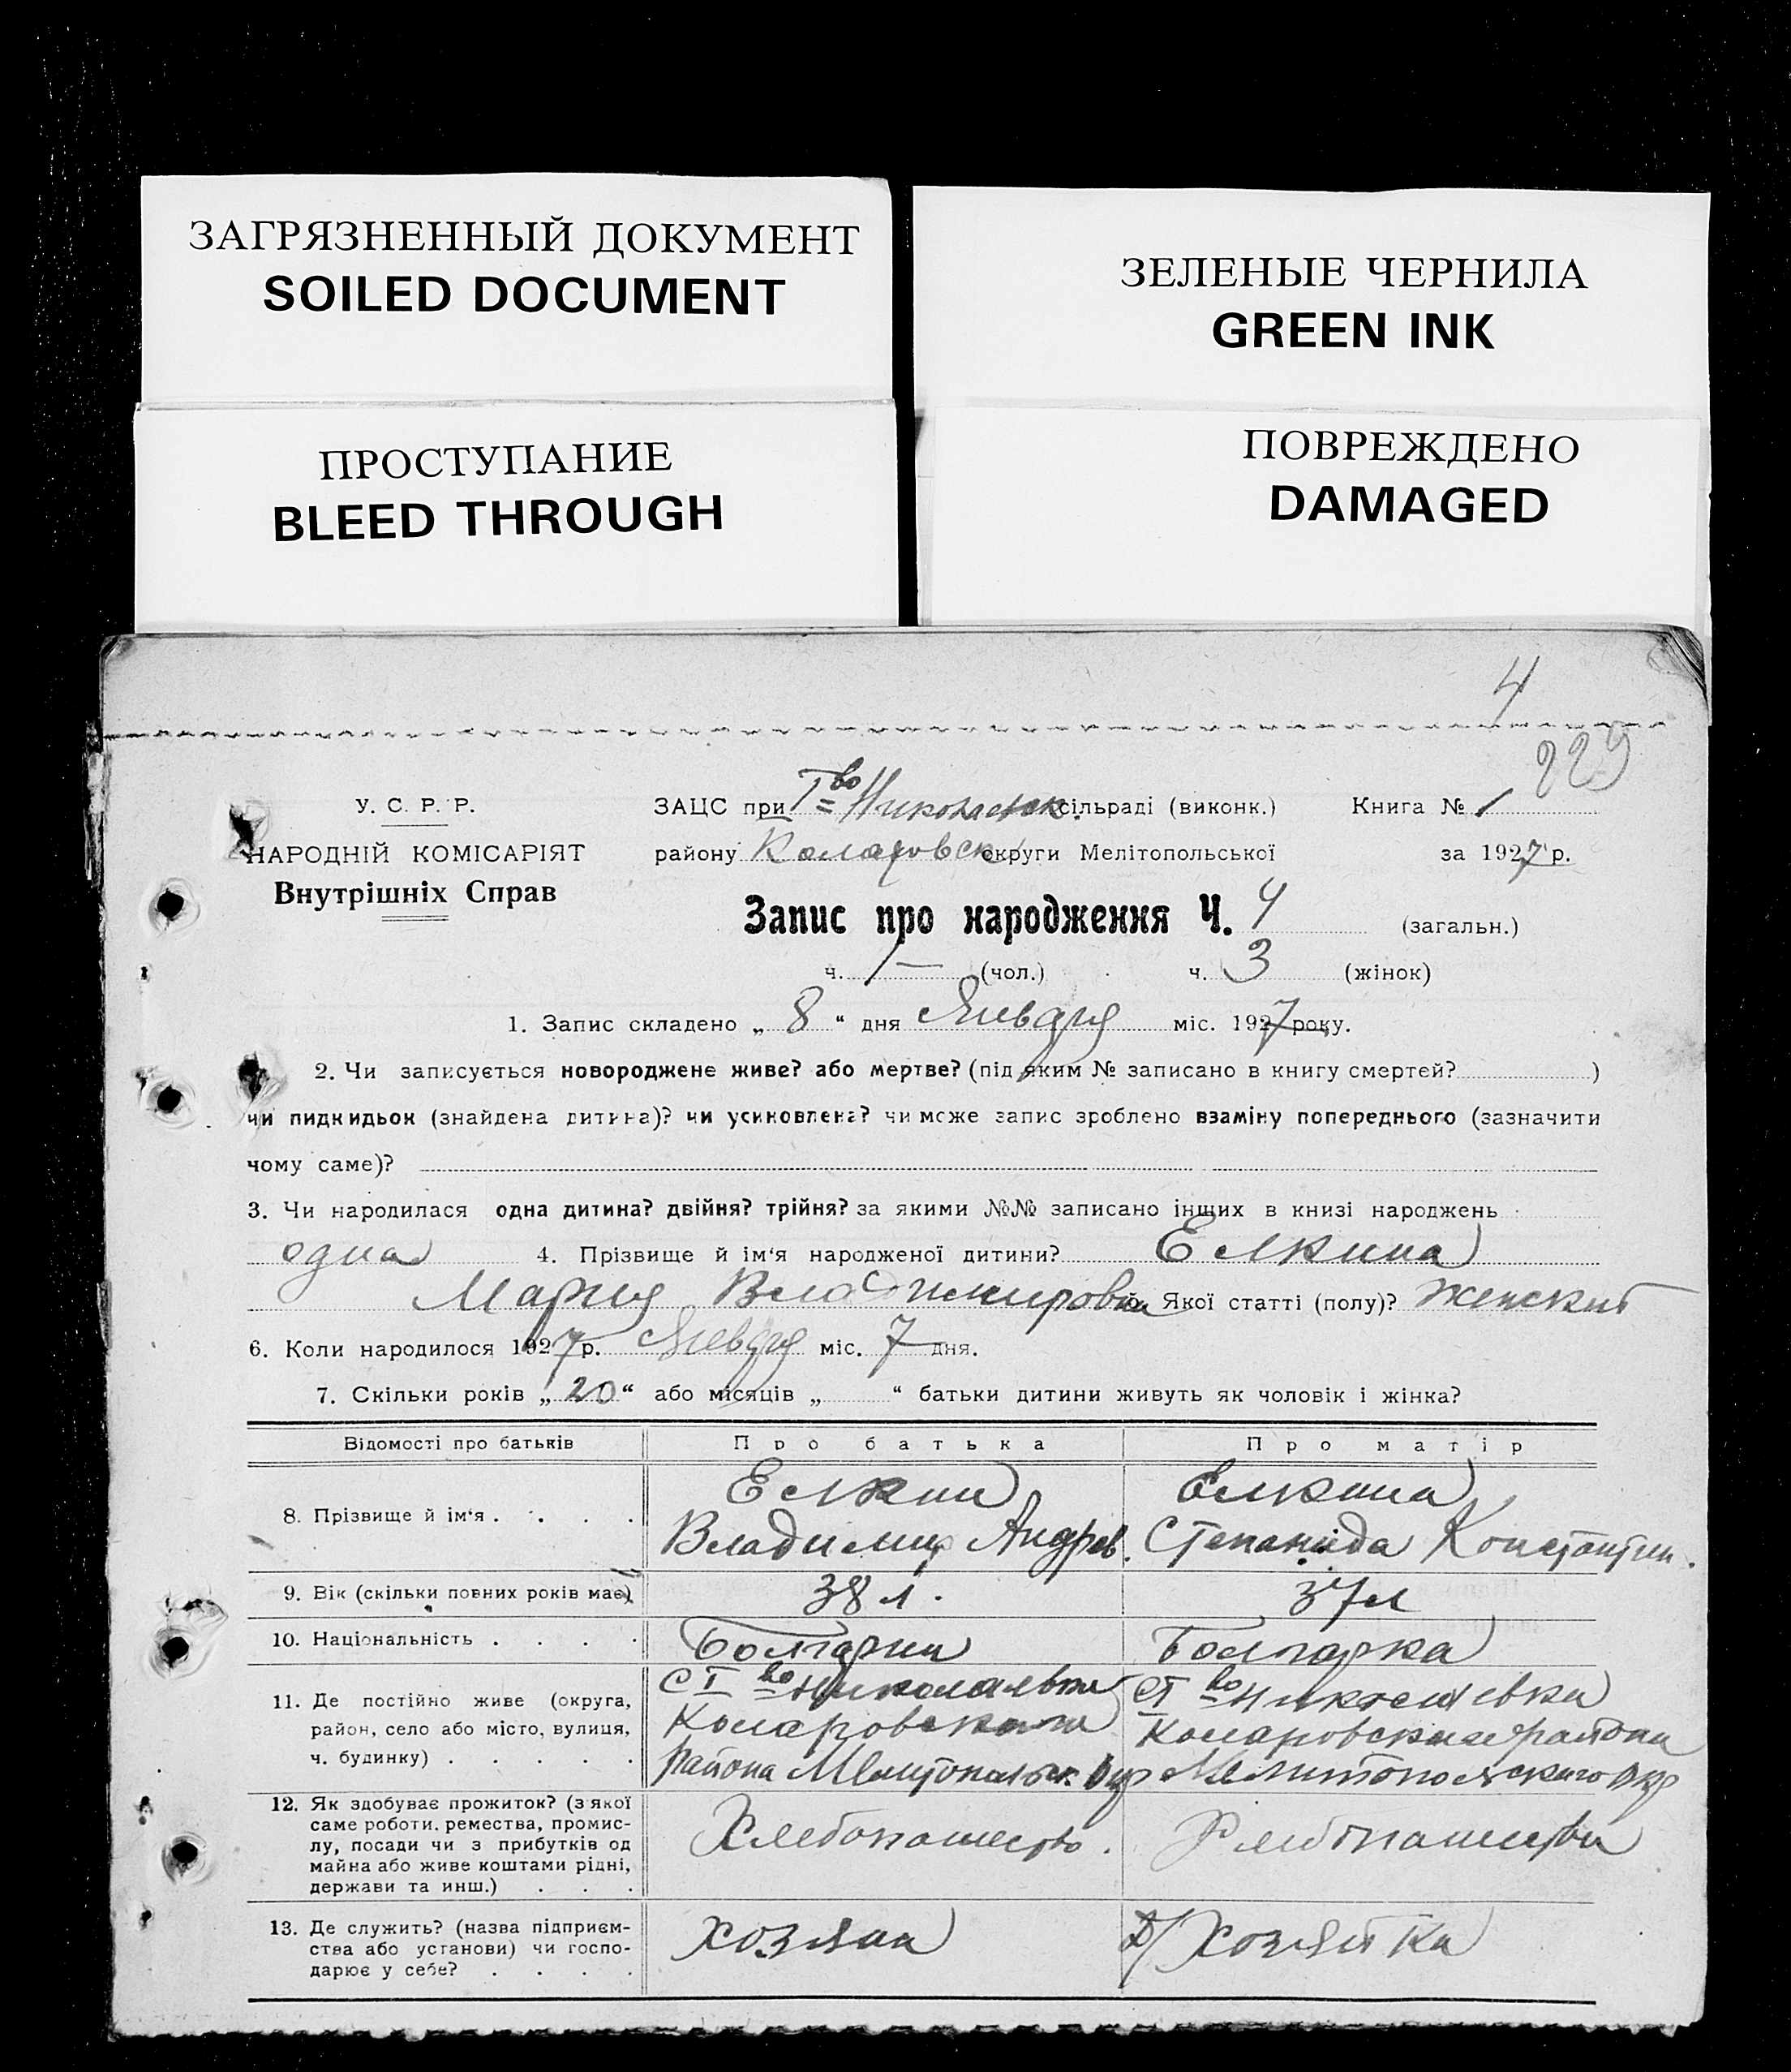 ЗАГРЯЗНЕННЫЙ ДОКУМЕНТ
SOILED DOCUMENT
ЗЕЛЕНЫЕ ЧЕРНИЛА
GREEN INK
ПРОСТУПАНИЕ
BLEED THROUGH
ПОВРЕЖДЕНО
DAMAGED
4
229
У. С. Р. Р.
НАРОДНІЙ КОМІСАРІЯТ
Внутрішніх Справ
ЗАЦС при І-во Николаевск. сільраді (виконк.) Книга № 1
району округи Мелітопольської за 1927 р.
Запис про народження Ч. 4 (загальн.)
ч. 1 — (чол.) ч. 3 (жінок)
1. Запис складено „ 8 “ дня Января міс. 1927 року.
2. Чи записується новороджене живе? або мертве? (під яким № записано в книгу смертей? )
чи пидкидьок (знайдена дитина)? чи усиновлена? чи може запис зроблено взаміну попереднього (зазначити
чому саме)?
3. Чи народилася одна дитина? двійня? трійня? за якими №№ записано інших в книзі народжень
одна 4. Прізвище й ім'я народженої дитини? Елкина
Мария Владимировна 5. Якої статті (полу)? женский
6. Коли народилося 1927 р. Января міс. 7 дня.
7. Скільки років „ 20 “ або місяців „ “ батьки дитини живуть як чоловік і жінка?
Відомості про батьків Про батька Про матір
8. Прізвище й ім'я . . . . .
Елкин
Владимир Андрев.
Елкина
Степанида Константин.
9. Вік (скільки повних років має) 38 л. 37 л
10. Національність . . . . Болгарин Болгарка
11. Де постійно живе (округа,
район, село або місто, вулиця,
ч. будинку) . . . . .
С І-во Николаевка
района Мелитопольск. Окр
С І-во Николаевка
района
Мелитопольскаго Окр
12. Як здобуває прожиток? (з якої
саме роботи, ремества, промис-
лу, посади чи з прибутків од
майна або живе коштами рідні,
держави та инш.) . . .
Хлебопашество.
Хлебопашество
13. Де служить? (назва підприєм-
ства або установи) чи госпо-
дарює у себе? . . . .
хозяин
Д/хозяйка